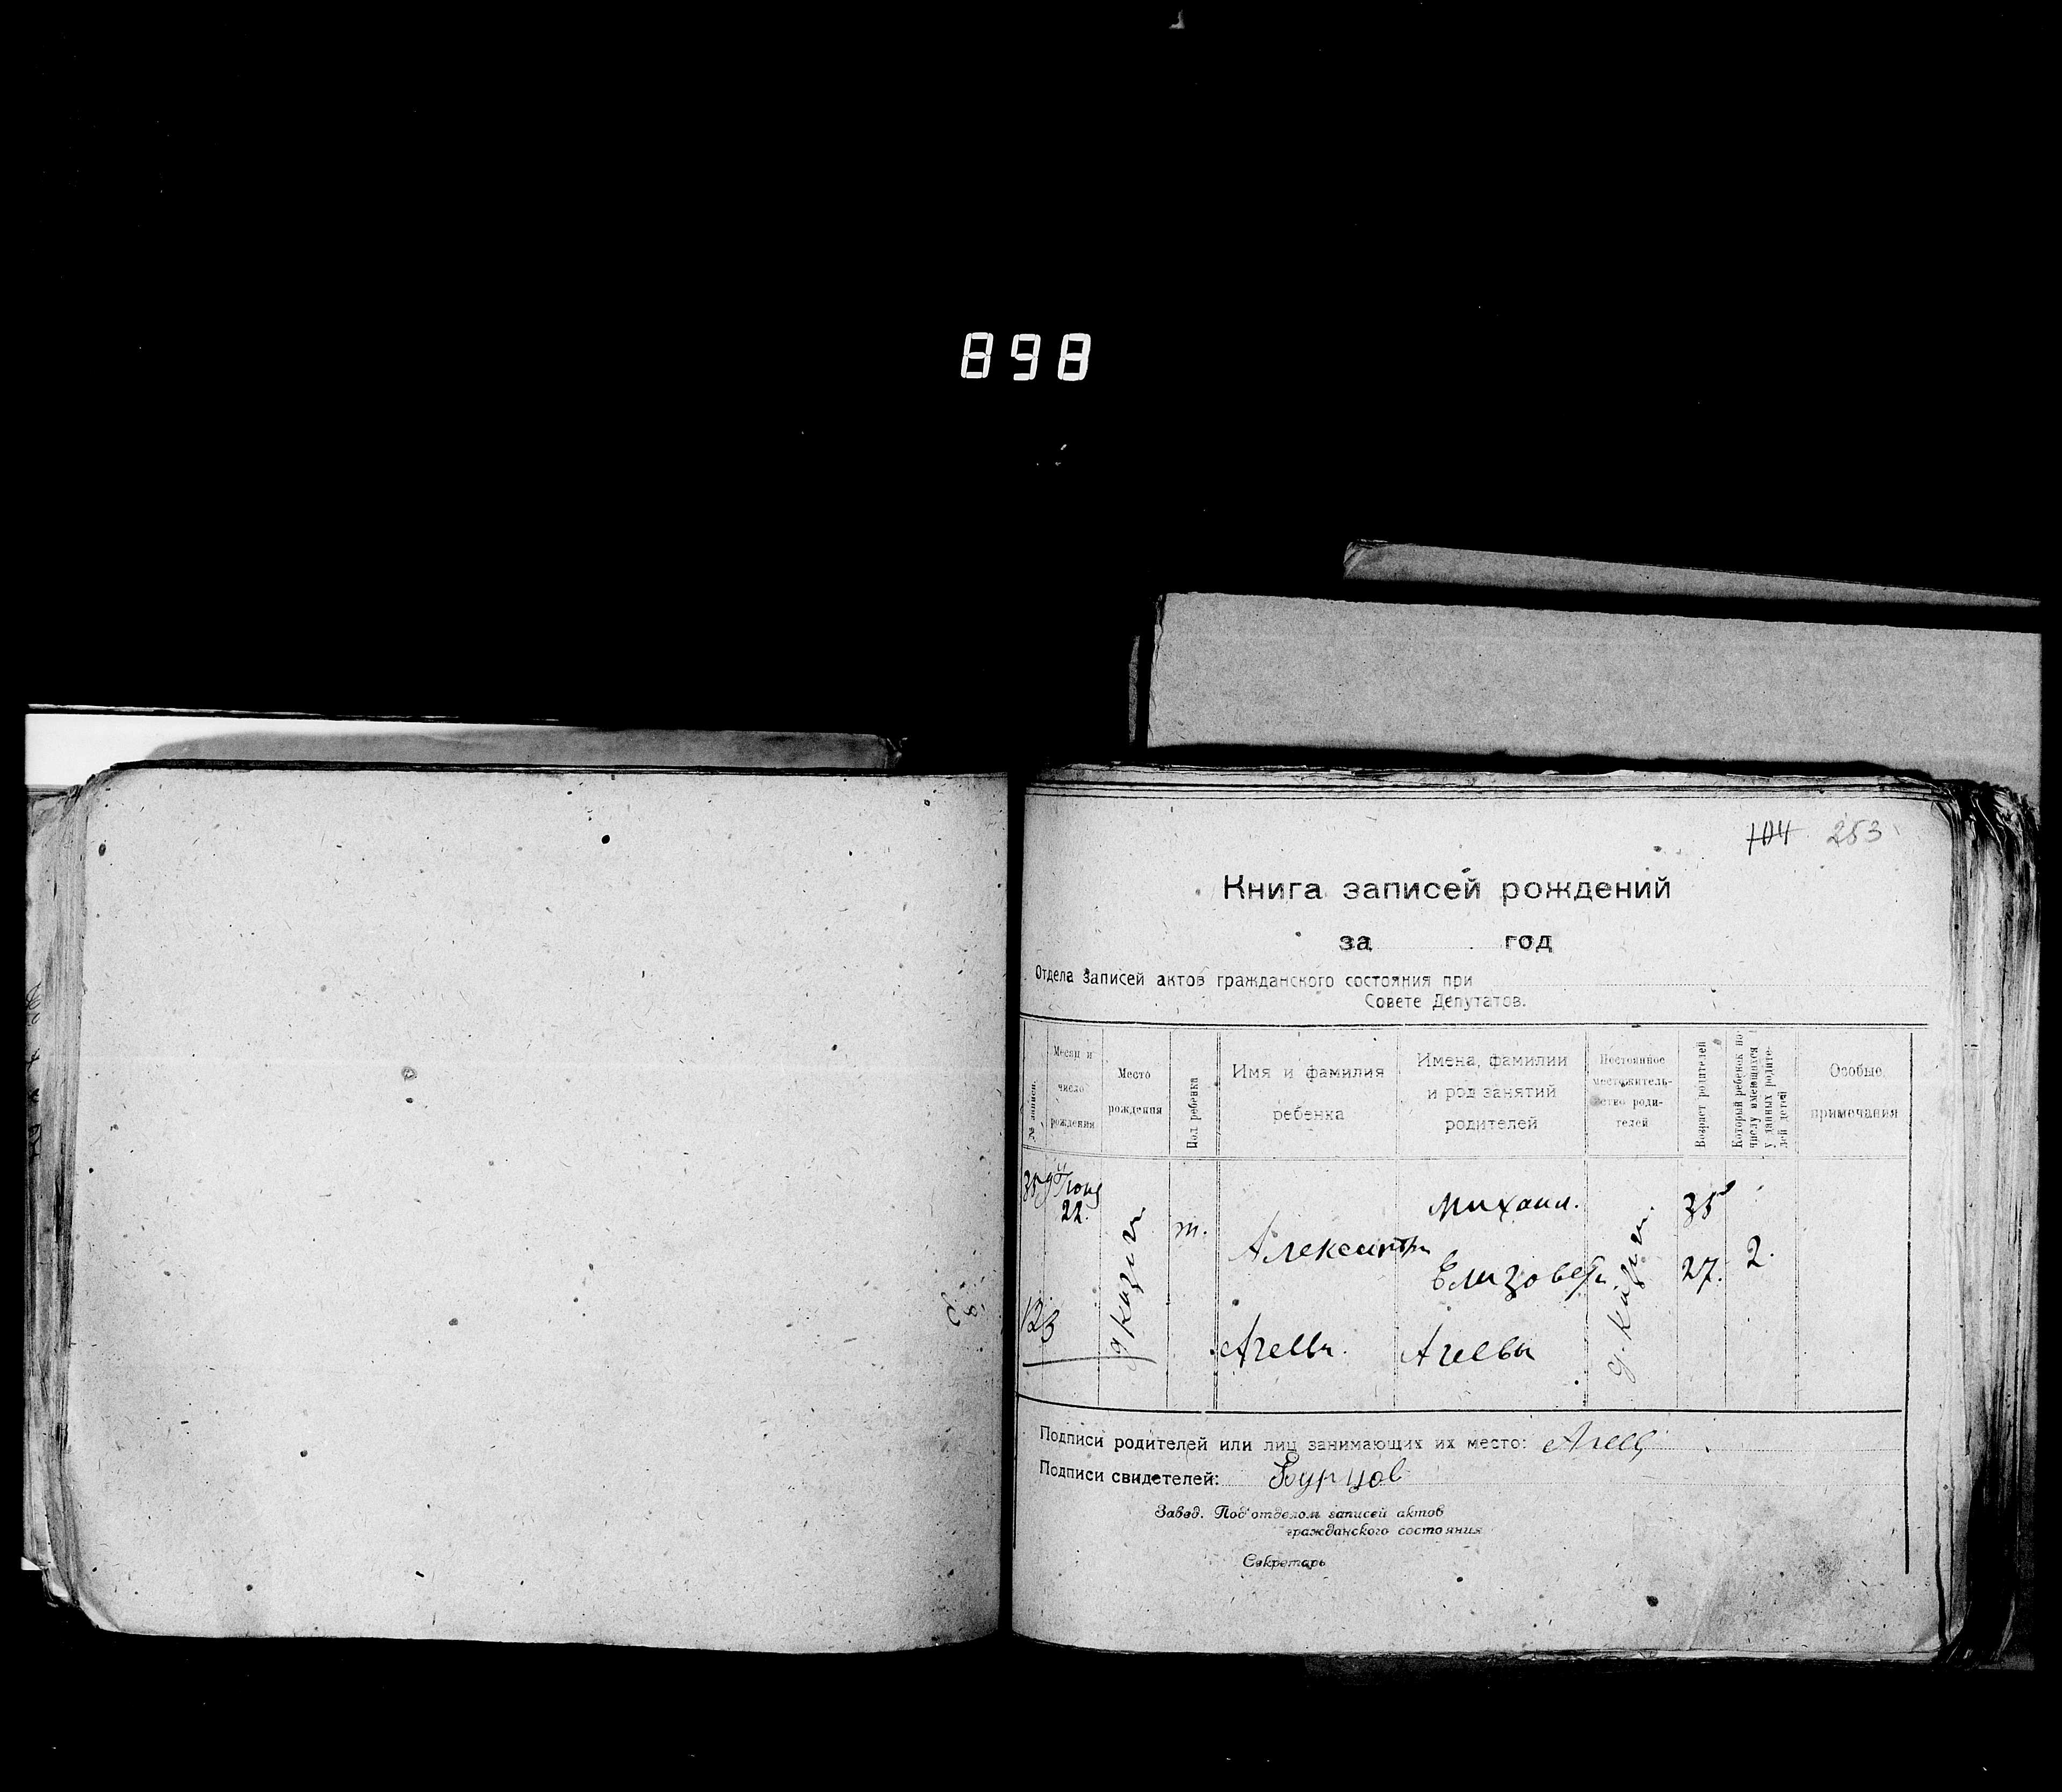 898
104 253
Книга записей рождений
за год
Отдела записей актов гражданского состояния при
Совете Депутатов.
№ записи.
Месяц и
число
рождения
Место
рождения
Пол ребенка
Имя и фамилия
ребенка
Имена, фамилии
и род занятий
родителей
Постоянное
местожитель-
ство роди-
телей
Возраст родителей
Который ребенок по
числу имеющихся
у данных родите-
лей детей
Особые
примечания
22.
m.
Михаил.
35
Елизовета
27.
2.
123
Агеевы
Подписи родителей или лиц занимающих их место:
Подписи свидетелей: Бурцов
Завед. Под'отделом записей актов
гражданского состояния
Секретарь